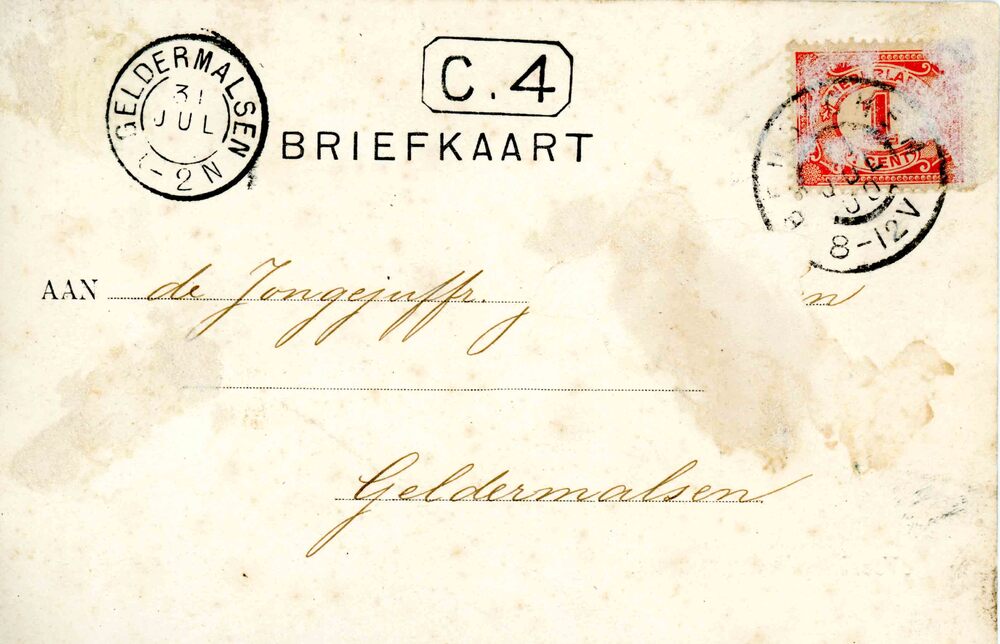 GELDERMALSEN
31
JUL
1-2N
C.4
BRIEFKAART
1
CENT
8-12V
AAN de Jongejuffr. n
Geldermalsen